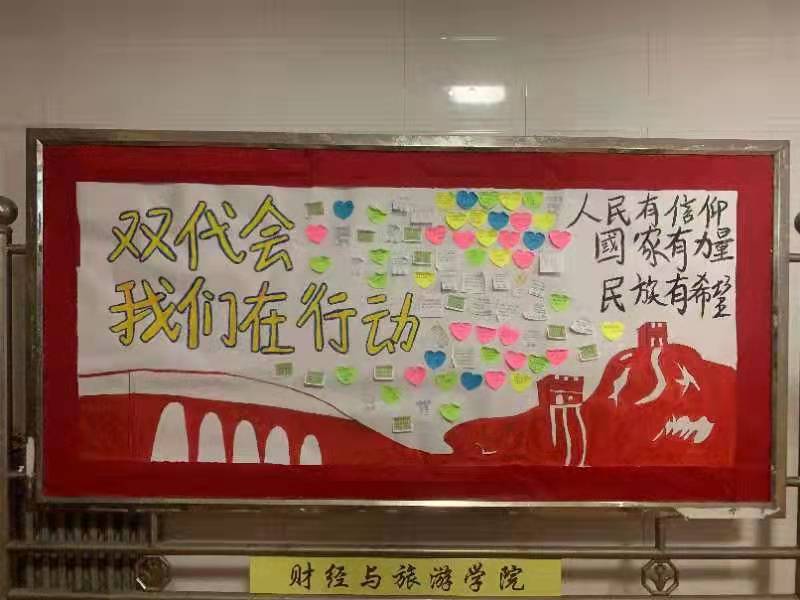 双代会
我们在行动
人民有信仰
國家有力量
民族有希望
财经与旅游学院